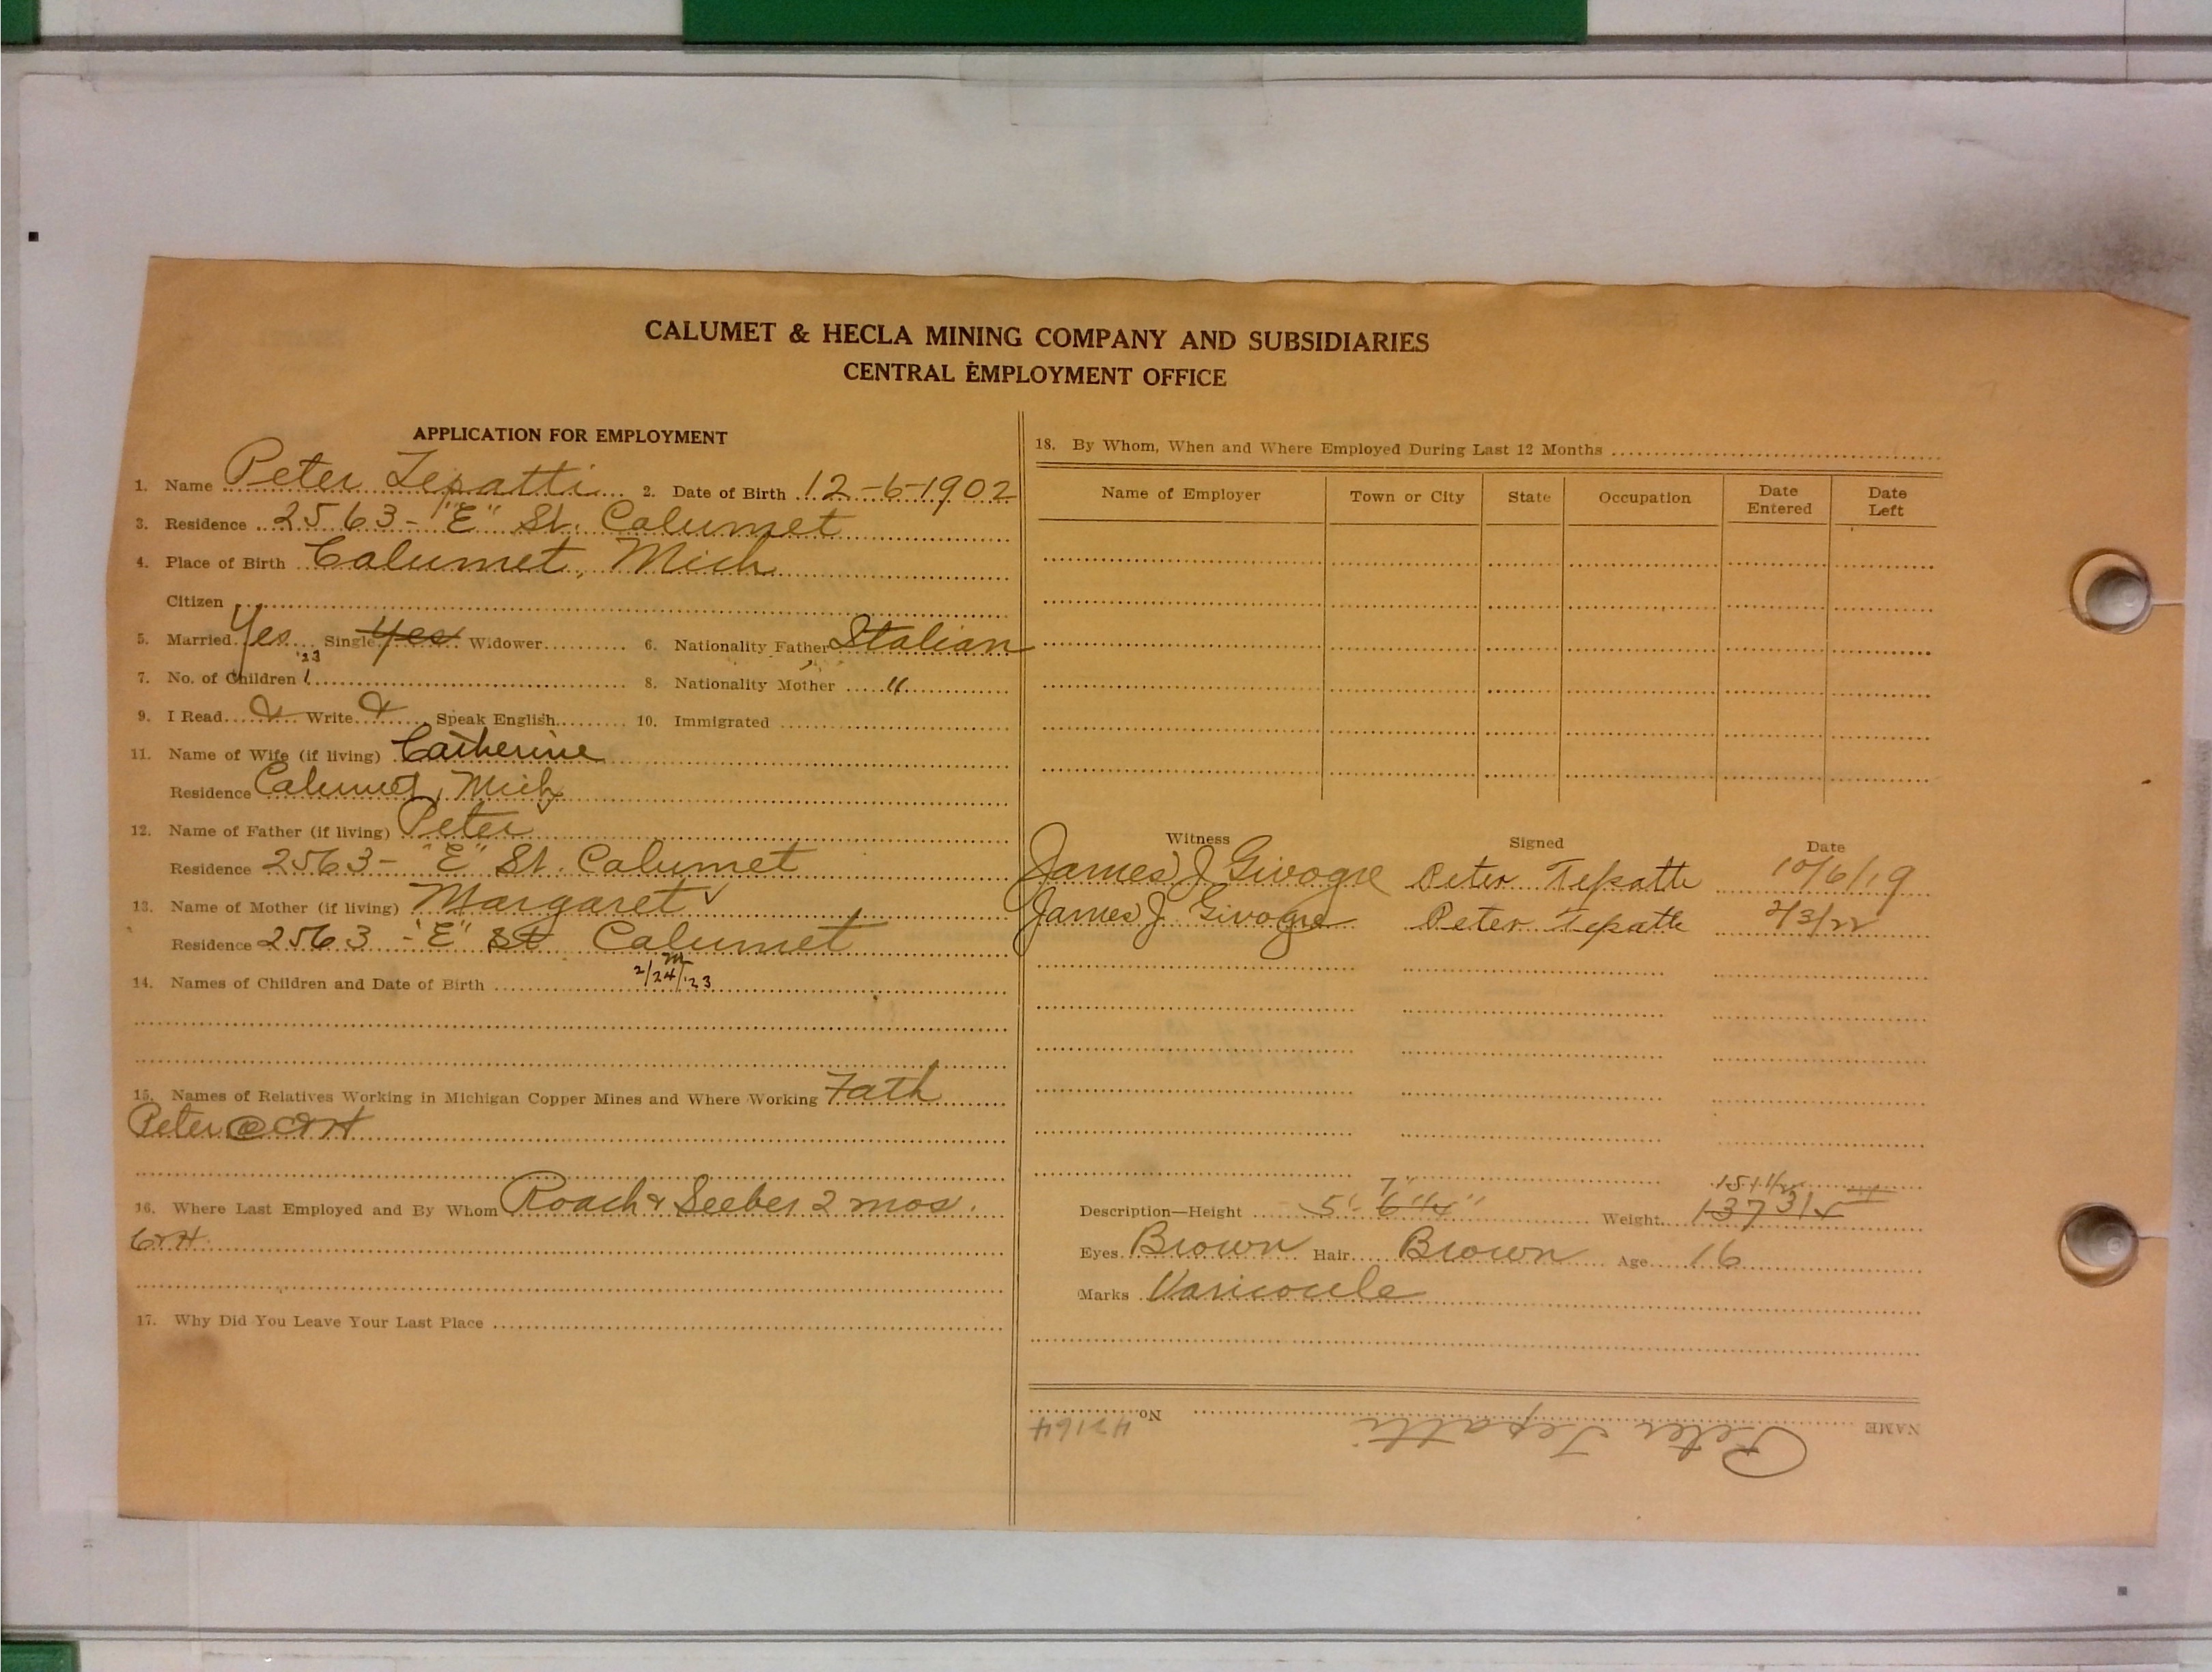 CALUMET & HECLA MINING COMPANY AND SUBSIDIARIES
CENTRAL EMPLOYMENT OFFICE
APPLICATION FOR EMPLOYMENT
1. Name Peter Tepatti 2. Date of Birth 12-6-1902
3. Residence 2563 - "E" St. Calumet
4. Place of Birth Calumet, Mich
Citizen
5. Married Yes Single Yes Widower 6. Nationality Father Italian
'23
7. No. of Children 1 8. Nationality Mother "
9. I Read Write Speak English 10. Immigrated
11. Name of Wife (if living) Catherine
Residence Calumet, Mich
12. Name of Father (if living) Peter
Residence 2563 - "E" St. Calumet
13. Name of Mother (if living) Margaret ✓
Residence 2563 - "E" St Calumet
14. Names of Children and Date of Birth 2/24/'23
15. Names of Relatives Working in Michigan Copper Mines and Where Working Fath
Peter @ C&H
16. Where Last Employed and By Whom Roach & Seeber 2 mos.
C&H
17. Why Did You Leave Your Last Place
18. By Whom, When and Where Employed During Last 12 Months
Name of Employer Town or City State Occupation Date Entered Date Left
Witness Signed Date
James J Givogre Peter Tepatti 10/6/19
James J. Givogre Peter Tepatti 2/3/22
7"
Description—Height 5' 6 1/4" Weight 137 3/4
Eyes Brown Hair Brown Age 16
Marks Varicocele
NAME Peter Tepatti No. 42164